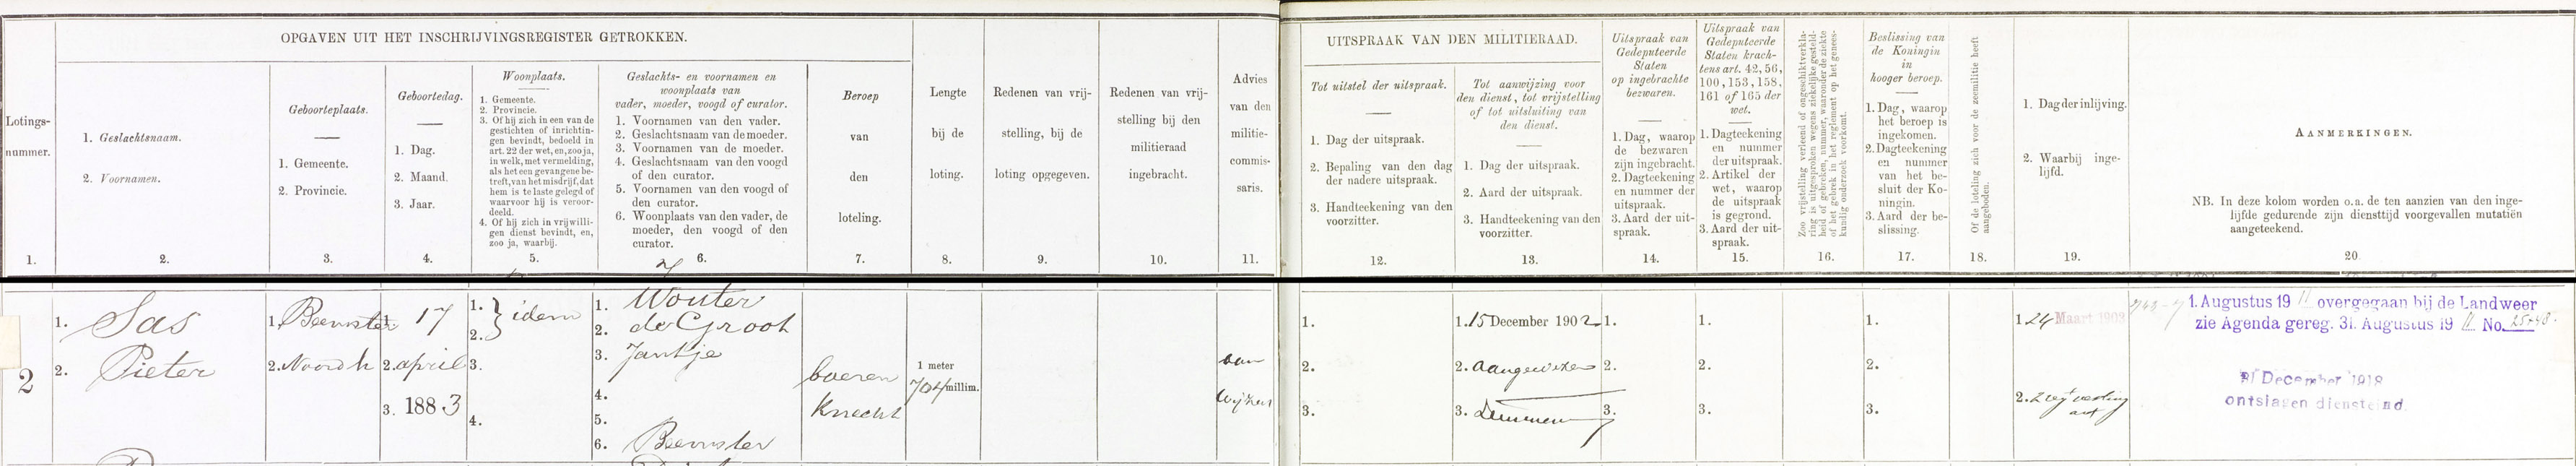 OPGAVEN UIT HET INSCHRIJVINGSREGISTER GETROKKEN.
Lotings-
nummer.
1.
1. Geslachtsnaam.
2. Voornamen.
2.
Geboorteplaats.
1. Gemeente.
2. Provincie.
3.
Geboortedag.
1. Dag.
2. Maand.
3. Jaar.
4.
Woonplaats.
1. Gemeente.
2. Provincie.
3. Of hij zich in een van de
gestichten of inrichtin-
gen bevindt, bedoeld in
art. 22 der wet, en, zoo ja,
in welk, met vermelding,
als het een gevangene be-
treft, van het misdrijf, dat
hem is te laste gelegd of
waarvoor hij is veroor-
deeld.
4. Of hij zich in vrijwilli-
gen dienst bevindt, en,
zoo ja, waarbij.
5.
Geslachts- en voornamen en
woonplaats van
vader, moeder, voogd of curator.
1. Voornamen van den vader.
2. Geslachtsnaam van de moeder.
3. Voornamen van de moeder.
4. Geslachtsnaam van den voogd
of den curator.
5. Voornamen van den voogd of
den curator.
6. Woonplaats van den vader, de
moeder, den voogd of den
curator.
6.
Beroep
van
den
loteling.
7.
Lengte
bij de
loting.
8.
Redenen van vrij-
stelling, bij de
loting opgegeven.
9.
Redenen van vrij-
stelling bij den
militieraad
ingebracht.
10.
Advies
van den
militie-
commis-
saris.
11.
UITSPRAAK VAN DEN MILITIERAAD.
Tot uitstel der uitspraak.
1. Dag der uitspraak.
2. Bepaling van den dag
der nadere uitspraak.
3. Handteekening van den
voorzitter.
12.
Tot aanwijzing voor
den dienst, tot vrijstelling
of tot uitsluiting van
den dienst.
1. Dag der uitspraak.
2. Aard der uitspraak.
3. Handteekening van den
voorzitter.
13.
Uitspraak van
Gedeputeerde
Staten
op ingebrachte
bezwaren.
1. Dag, waarop
de bezwaren
zijn ingebracht.
2. Dagteekening
en nummer der
uitspraak.
3. Aard der uit-
spraak.
14.
Uitspraak van
Gedeputeerde
Staten krach-
tens art. 42, 56,
100, 153, 158,
161 of 165 der
wet.
1. Dagteekening
en nummer
der uitspraak.
2. Artikel der
wet, waarop
de uitspraak
is gegrond.
3. Aard der uit-
spraak.
15.
Zoo vrijstelling verleend of ongeschiktverkla-
ring is uitgesproken wegens ziekelijke gesteld-
heid of gebreken, nummer, waaronder de ziekte
of het gebrek in het reglement op het genees-
kundig onderzoek voorkomt.
16.
Beslissing van
de Koningin
in
hooger beroep.
1. Dag, waarop
het beroep is
ingekomen.
2. Dagteekening
en nummer
van het be-
sluit der Ko-
ningin.
3. Aard der be-
slissing.
17.
Of de loteling zich voor de zeemilitie heeft
aangeboden.
18.
1. Dag der inlijving.
2. Waarbij inge-
lijfd.
19.
AANMERKINGEN.
NB. In deze kolom worden o. a. de ten aanzien van den inge-
lijfde gedurende zijn diensttijd voorgevallen mutatiën
aangeteekend.
20
2
1. Sas
2. Pieter
1. Beemster
2. Noord h
17
2. april
3. 1883
1. } idem
2.
3.
4.
1. Wouter
2. de Groot
3. Jantje
4.
5.
6. Beemster
boeren
knecht
1 meter
704 millim.
aan
wijzen
1.
2.
3.
1. 15 December 1902
2. Aangewezen
3.
1.
2.
3.
1.
2.
3.
1.
2.
3.
1. 24 Maart 1903
2. 2 reg vesting
art
1. Augustus 19 11 overgegaan bij de Landweer
zie Agenda gereg. 31. Augustus 19 11 No.
31 December 1918
ontslagen diensteind.